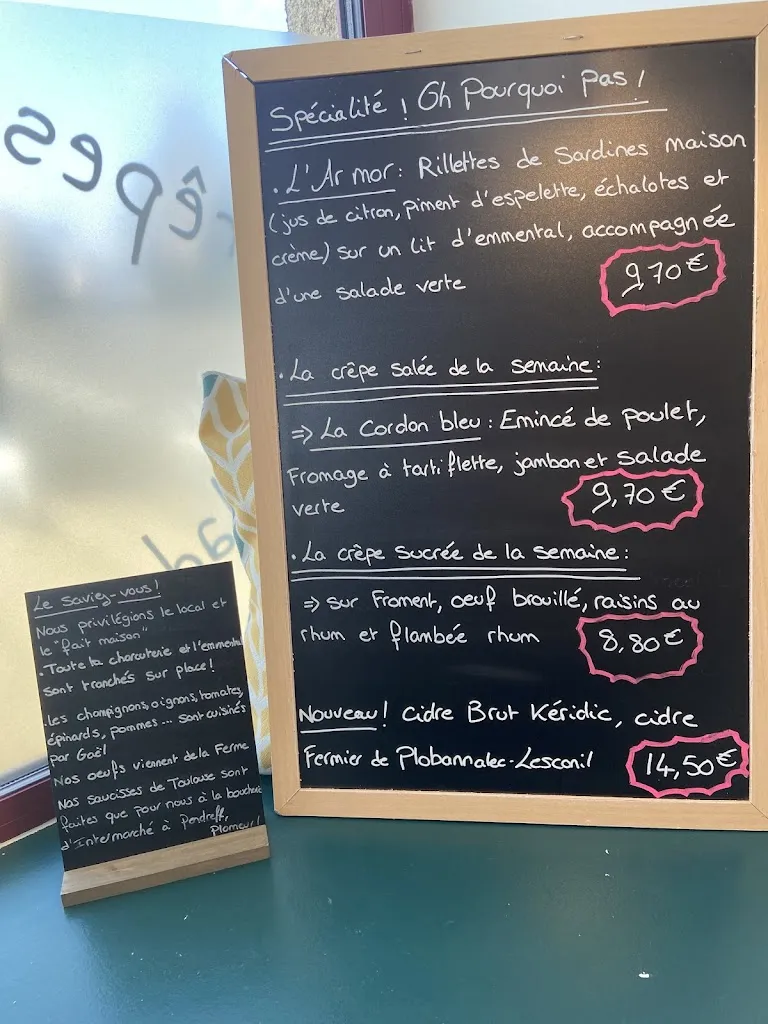 Spécialité ! Oh Pourquoi Pas !
. L'Armor : Rillettes de Sardines maison
(jus de citron, piment d'espelette, échalotes et
crème) sur un lit d'emmental, accompagnée
d'une salade verte
9,70€
. La crêpe salée de la semaine :
=> La Cordon bleu : Emincé de poulet,
Fromage à tartiflette, jambon et salade
verte
9,70€
. La crêpe sucrée de la semaine :
=> sur Froment, oeuf brouillé, raisins au
rhum et flambée rhum
8,80€
Nouveau ! Cidre Brut Kéridic, cidre
Fermier de Plobannalec-Lesconil
14,50€
Le saviez-vous !
Nous privilégions le local et
le "fait maison"
. Toute la charcuterie et l'emmental
sont tranchés sur place !
. Les champignons, oignons, tomates,
épinards, pommes ... sont cuisinés
par Gaël
Nos oeufs viennent de la Ferme
Nos saucisses de Toulouse sont
faites que pour nous à la boucherie
d'Intermarché à Pendreff,
Plomeur !
rêpes